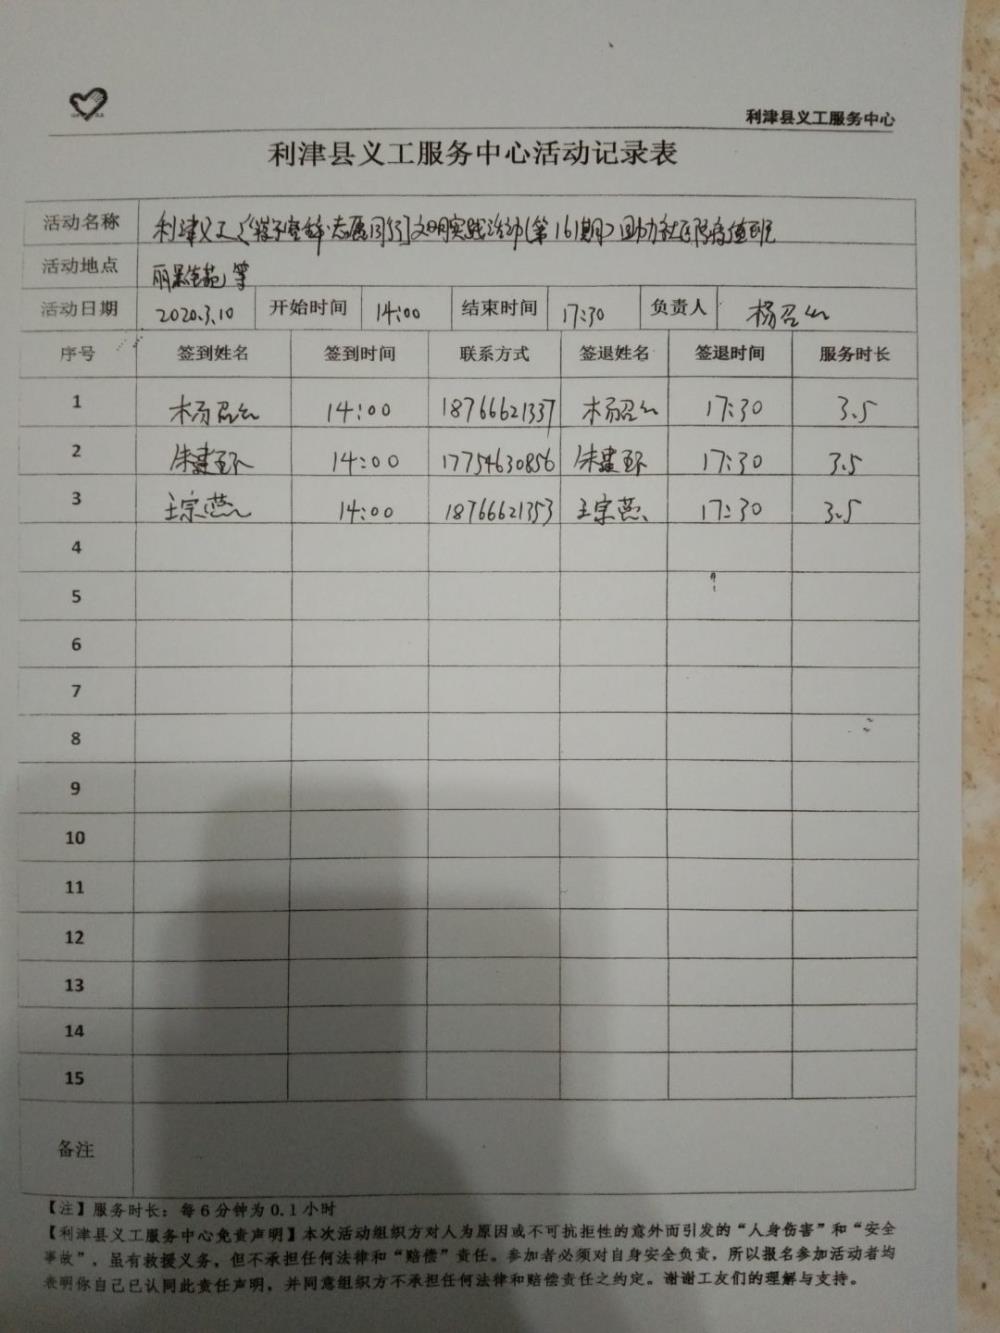 利津县义工服务中心
利津县义工服务中心活动记录表
活动名称 利津义工 志愿同行 文明实践活动(第161期) 助力社区防疫值班
活动地点 丽景花苑 等
活动日期 2020.3.10 开始时间 14:00 结束时间 17:30 负责人 杨
序号 签到姓名 签到时间 联系方式 签退姓名 签退时间 服务时长
1 杨 14:00 18766621337 杨 17:30 3.5
2 朱建环 14:00 17754630856 朱建环 17:30 3.5
3 王宗燕 14:00 18766621353 王宗燕 17:30 3.5
4
5
6
7
8
9
10
11
12
13
14
15
备注
【注】服务时长：每6分钟为0.1小时
【利津县义工服务中心免责声明】本次活动组织方对人为原因或不可抗拒性的意外而引发的“人身伤害”和“安全
事故”，虽有救援义务，但不承担任何法律和“赔偿”责任。参加者必须对自身安全负责，所以报名参加活动者均
表明你自己已认同此责任声明，并同意组织方不承担任何法律和赔偿责任之约定。谢谢工友们的理解与支持。